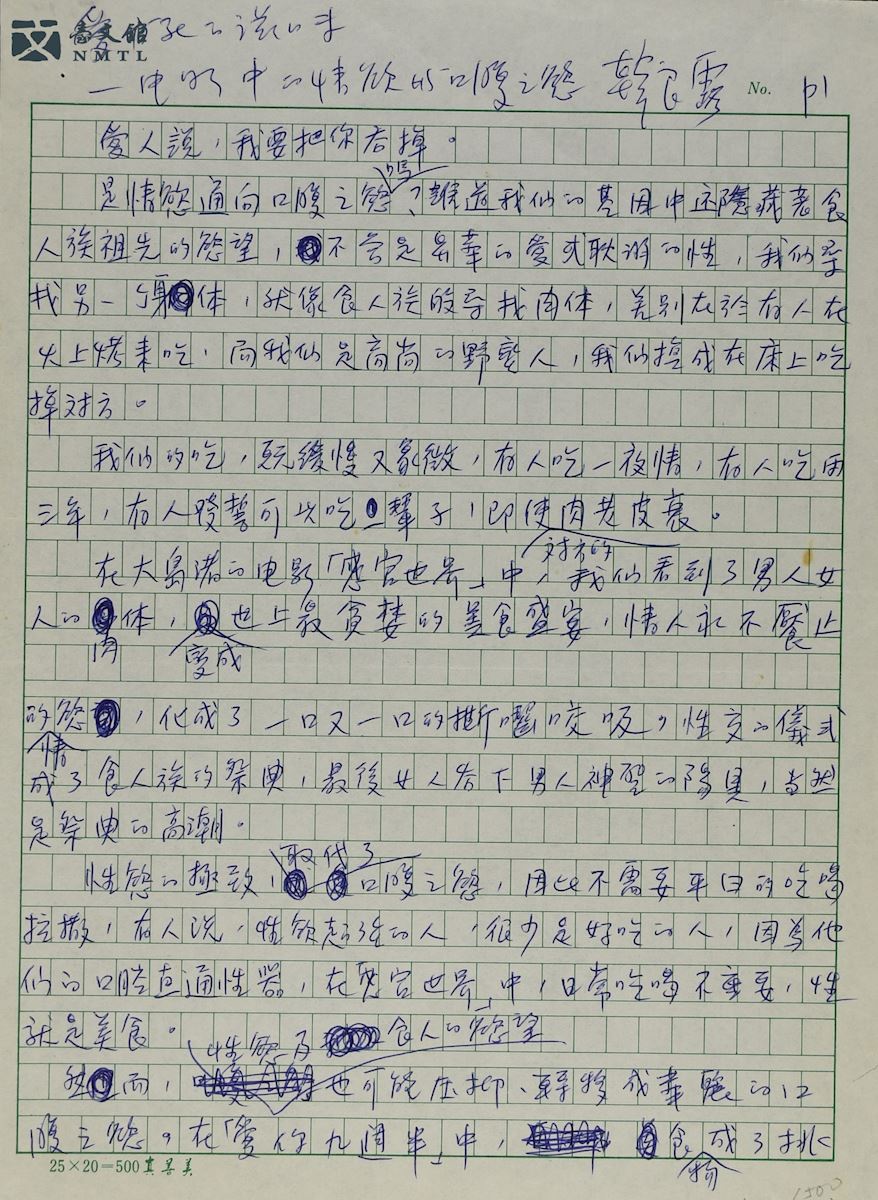 臺文館
NMTL
愛死的滋味
—电影中的情欲与口腹之慾 韓良露 No. p1
愛人說,我要把你吞掉。
是情慾通向口腹之慾嗎?難道我们的基因中还隱藏着食
人族祖先的慾望,不管是昇華的愛或耽溺的性,我们尋
找另一身体,就像食人族的尋找肉体,差別在於有人在
火上烤來吃,而我们是高尚的野蛮人,我们換成在床上吃
掉对方。
我们的吃,既緩慢又象徵,有人吃一夜情,有人吃兩
三年,有人發誓可以吃一輩子,即使对方的肉老皮衰。
在大島渚的电影「感官世界」中,我们看到了男人女
人的肉体,變成世上最貪婪的美食盛宴,情人永不饜止
的情慾,化成了一口又一口的撕嚙咬吸,性交的儀式
成了食人族的祭典,最後女人吞下男人神聖的陽具,当然
是祭典的高潮。
性慾的極致,取代了口腹之慾,因此不需要平日的吃喝
拉撒,有人说,性欲超强的人,很少是好吃的人,因為他
们的口腔直通性器,在「感官世界」中,日常吃喝不重要,性
就是美食。
然而,性慾及食人的慾望也可能压抑、轉換成華麗的口
腹之慾。在「愛你九週半」中,食物成了挑
25×20=500 真善美